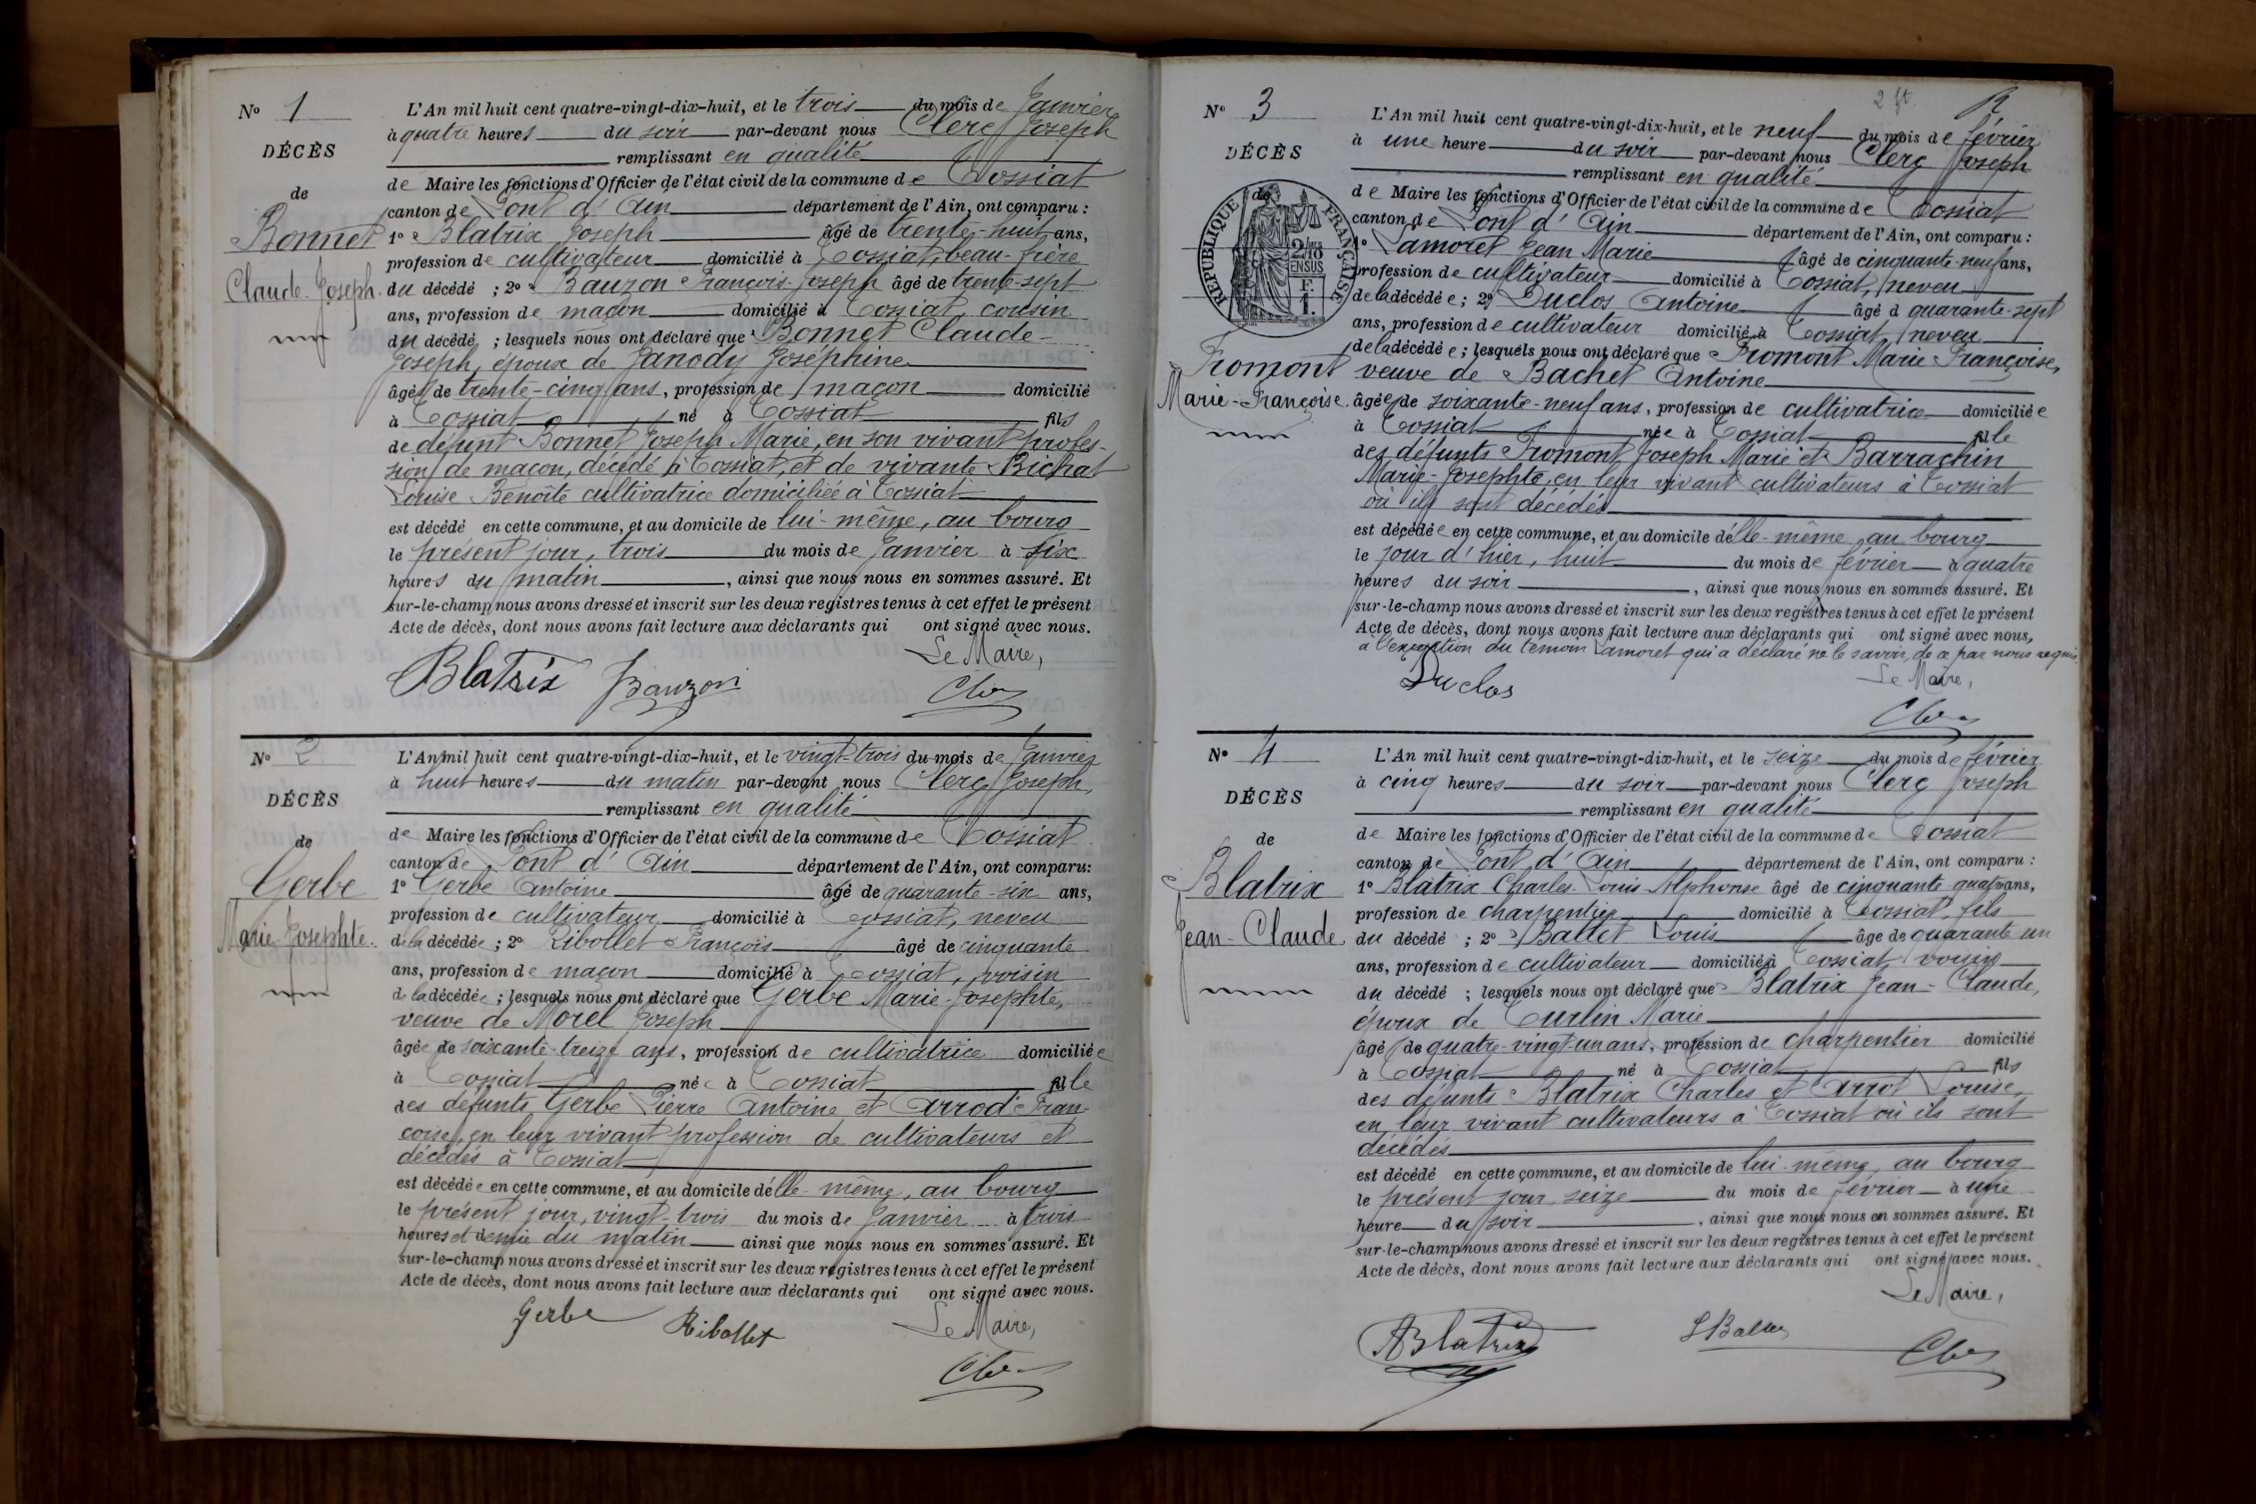 N° 1
DÉCÈS
de
Bonnet
Claude-Joseph.
L'An mil huit cent quatre-vingt-dix-huit, et le trois du mois de Janvier
à quatre heures du soir par-devant nous Clerc Joseph
remplissant en qualité
de Maire les fonctions d'Officier de l'état civil de la commune de Tossiat
canton de Pont d'Ain département de l'Ain, ont comparu :
1° Blatrix Joseph âgé de trente-huit ans,
profession de cultivateur domicilié à Tossiat, beau-frère
du décédé ; 2° Bauzon François-Joseph âgé de trente-sept
ans, profession de maçon domicilié à Tossiat, cousin
du décédé ; lesquels nous ont déclaré que Bonnet Claude-
Joseph, époux de Janody Joséphine
âgé de trente-cinq ans, profession de maçon domicilié
à Tossiat né à Tossiat fils
de défunt Bonnet Joseph Marie, en son vivant profes-
sion de maçon, décédé à Tossiat, et de vivante Bichat
Louise Benoîte cultivatrice domiciliée à Tossiat
est décédé en cette commune, et au domicile de lui-même, au bourg
le présent jour, trois du mois de Janvier à six
heures du matin, ainsi que nous nous en sommes assuré. Et
sur-le-champ nous avons dressé et inscrit sur les deux registres tenus à cet effet le présent
Acte de décès, dont nous avons fait lecture aux déclarants qui ont signé avec nous.
Le Maire,
Blatrix Bauzon
N° 2
DÉCÈS
de
Gerbe
Marie-Josephte.
L'An mil huit cent quatre-vingt-dix-huit, et le vingt-trois du mois de Janvier
à huit heures du matin par-devant nous Clerc Joseph,
remplissant en qualité
de Maire les fonctions d'Officier de l'état civil de la commune de Tossiat
canton de Pont d'Ain département de l'Ain, ont comparu:
1° Gerbe Antoine âgé de quarante-six ans,
profession de cultivateur domicilié à Tossiat, neveu
de la décédée ; 2° Ribollet François âgé de cinquante
ans, profession de maçon domicilié à Tossiat, voisin
de la décédée ; lesquels nous ont déclaré que Gerbe Marie-Josephte,
veuve de Morel Joseph
âgée de soixante-treize ans, profession de cultivatrice domiciliée
à Tossiat née à Tossiat fille
des défunts Gerbe Pierre Antoine et Arrod Fran-
çoise, en leur vivant profession de cultivateurs et
décédés à Tossiat
est décédée en cette commune, et au domicile d'elle-même, au bourg
le présent jour, vingt-trois du mois de Janvier à trois
heures et demie du matin ainsi que nous nous en sommes assuré. Et
sur-le-champ nous avons dressé et inscrit sur les deux registres tenus à cet effet le présent
Acte de décès, dont nous avons fait lecture aux déclarants qui ont signé avec nous.
Gerbe Ribollet Le Maire,
2 ft.
N° 3
DÉCÈS
de
RÉPUBLIQUE FRANÇAISE
Fromont
Marie-Françoise.
L'An mil huit cent quatre-vingt-dix-huit, et le neuf du mois de février
à une heure du soir par-devant nous Clerc Joseph
remplissant en qualité
de Maire les fonctions d'Officier de l'état civil de la commune de Tossiat
canton de Pont d'Ain département de l'Ain, ont comparu :
1° Lamoret Jean Marie âgé de cinquante-neuf ans,
profession de cultivateur domicilié à Tossiat, neveu
de la décédée ; 2° Duclos Antoine âgé d quarante-sept
ans, profession de cultivateur domicilié à Tossiat, neveu
de la décédée ; lesquels nous ont déclaré que Fromont Marie-Françoise,
veuve de Bachet Antoine
âgée de soixante-neuf ans, profession de cultivatrice domiciliée
à Tossiat née à Tossiat fille
des défunts Fromont Joseph Marie et Barrachin
Marie-Josephte, en leur vivant cultivateurs à Tossiat
où ils sont décédés
est décédée en cette commune, et au domicile d'elle-même, au bourg
le jour d'hier, huit du mois de février à quatre
heures du soir, ainsi que nous nous en sommes assuré. Et
sur-le-champ nous avons dressé et inscrit sur les deux registres tenus à cet effet le présent
Acte de décès, dont nous avons fait lecture aux déclarants qui ont signé avec nous,
à l'exception du témoin Lamoret qui a déclaré ne le savoir, de ce par nous requis
Duclos Le Maire,
N° 4
DÉCÈS
de
Blatrix
Jean-Claude
L'An mil huit cent quatre-vingt-dix-huit, et le seize du mois de février
à cinq heures du soir par-devant nous Clerc Joseph
remplissant en qualité
de Maire les fonctions d'Officier de l'état civil de la commune de Tossiat
canton de Pont d'Ain département de l'Ain, ont comparu :
1° Blatrix Charles-Louis Alphonse âgé de cinquante quatre ans,
profession de charpentier domicilié à Tossiat, fils
du décédé ; 2° Ballet Louis âgé de quarante un
ans, profession de cultivateur domicilié à Tossiat voisin
du décédé ; lesquels nous ont déclaré que Blatrix Jean-Claude,
époux de Curlin Marie
âgé de quatre-vingt-un ans, profession de charpentier domicilié
à Tossiat né à Tossiat fils
des défunts Blatrix Charles et Arrot Louise,
en leur vivant cultivateurs à Tossiat où ils sont
décédés
est décédé en cette commune, et au domicile de lui-même, au bourg
le présent jour, seize du mois de février à une
heure du soir, ainsi que nous nous en sommes assuré. Et
sur-le-champ nous avons dressé et inscrit sur les deux registres tenus à cet effet le présent
Acte de décès, dont nous avons fait lecture aux déclarants qui ont signé avec nous.
Le Maire,
ABlatrix